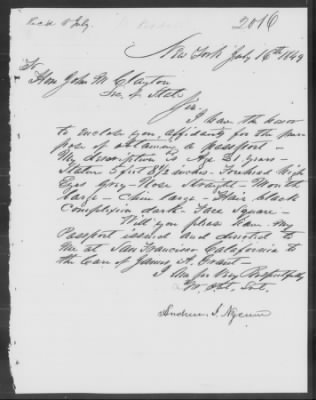 Rec'd 18 July.
2016
New York July 16th 1849
To
Hon John M Clayton
Sec. of State
Sir
I have the honor
to inclose you, affidavit for the pur
pose of obtaining a passport -
My description is Age 31 years -
Stature 5 feet 8 1/2 inches. Forehead High
Eyes Grey - Nose Straight - Mouth
large - Chin large - Hair black
Complexion dark - Face Square -
Will you please have my
Passport issued and directed to
me at San Francisco California to
the Care of James A. Grant -
I Am Sir Very Respectfully
Yr Obt. Svt.
Andrew J.